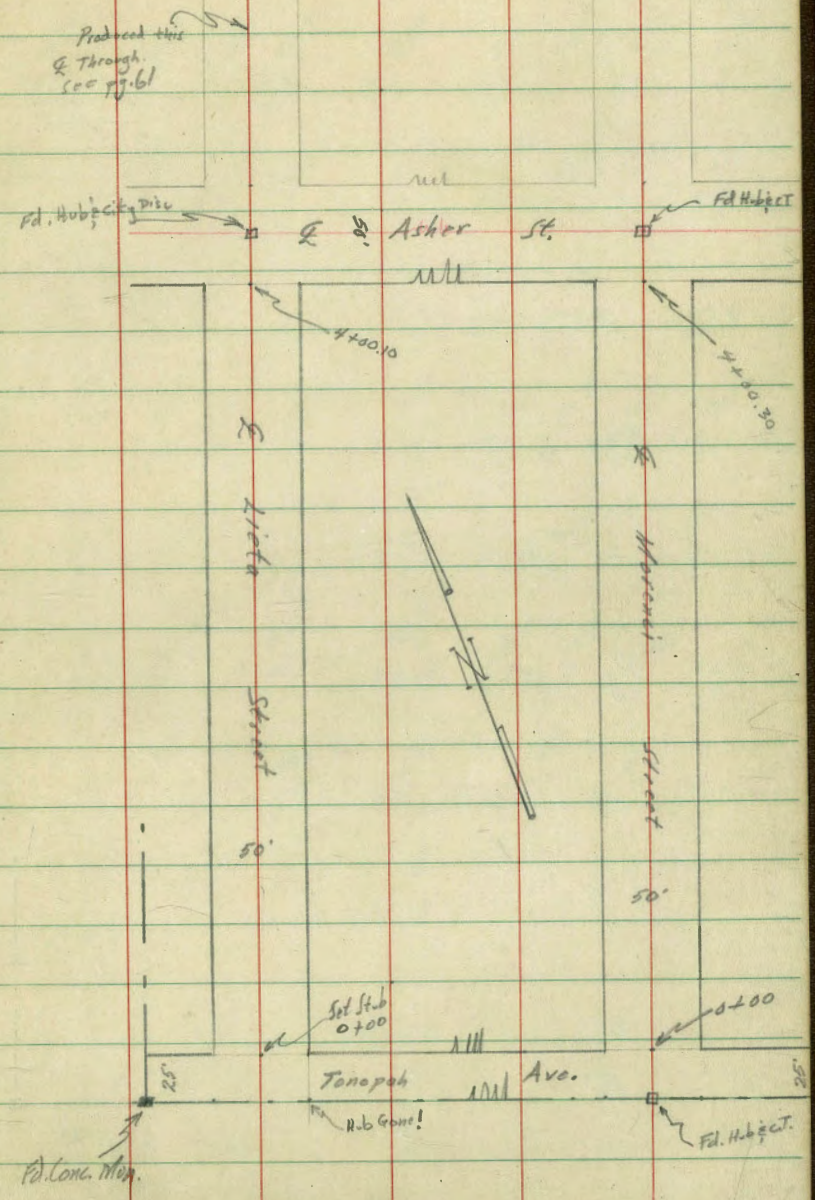 Produced this
℄ Through.
See pg. 61
Fd. Hub & City Disc
Fd Hub & CT
℄ 50' Asher St.
4+00.10
4+00.30
℄ Lieta Street
50'
℄ Morenci Street
50'
N
Set Stub
0+00
0+00
25'
Tonopah Ave.
25'
Hub Gone!
Fd. Hub & CT.
Fd. Conc. Mon.